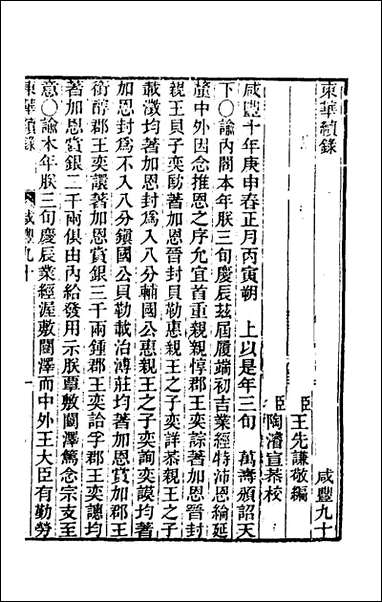 東華續錄 咸豐九十
臣王先謙敬編
臣陶濬宣恭校
咸豐十年庚申春正月丙寅朔 上以是年三旬 萬壽頒詔天
下○諭內閣本年朕三旬慶辰茲屆履端初吉業經特沛恩綸延
釐中外因念推恩之序允宜首重親親惇郡王奕誴著加恩晉封
親王貝子奕劻著加恩晉封貝勒惠親王之子奕詳恭親王之子
載澂均著加恩封爲入八分輔國公惠親王之子奕詢奕謨均著
加恩封爲不入八分鎭國公貝勒載治溥莊均著加恩賞加郡王
銜醇郡王奕譞著加恩賞銀三千兩鍾郡王奕詥孚郡王奕譓均
著加恩賞銀二千兩俱由內給發用示朕覃敷闓澤篤念宗支至
意○諭本年朕三旬慶辰業經渥敷闓澤而中外王大臣有勤勞
東華續錄 咸豐九十 一